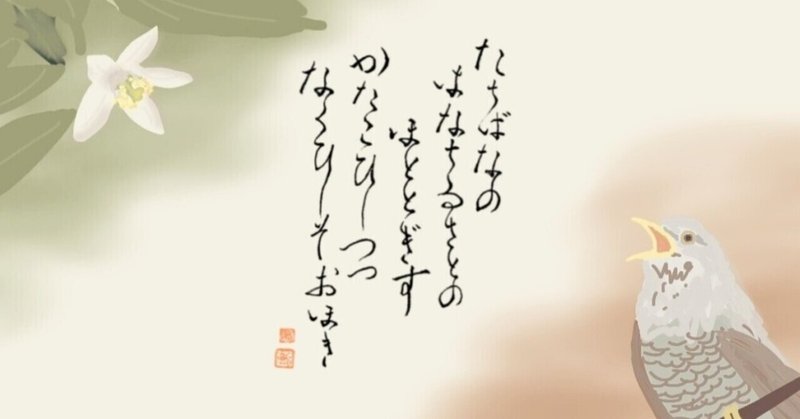 たちばなの
はなちるさとの
ほととぎす
かたこひしつつ
なくひしそおほき